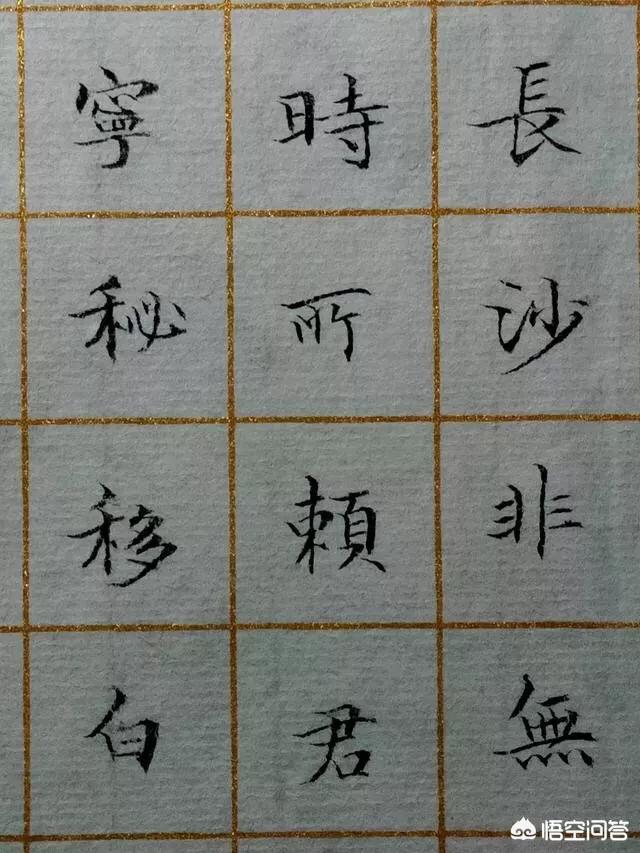 長沙非無
時所賴君
寧秘移白
悟空问答